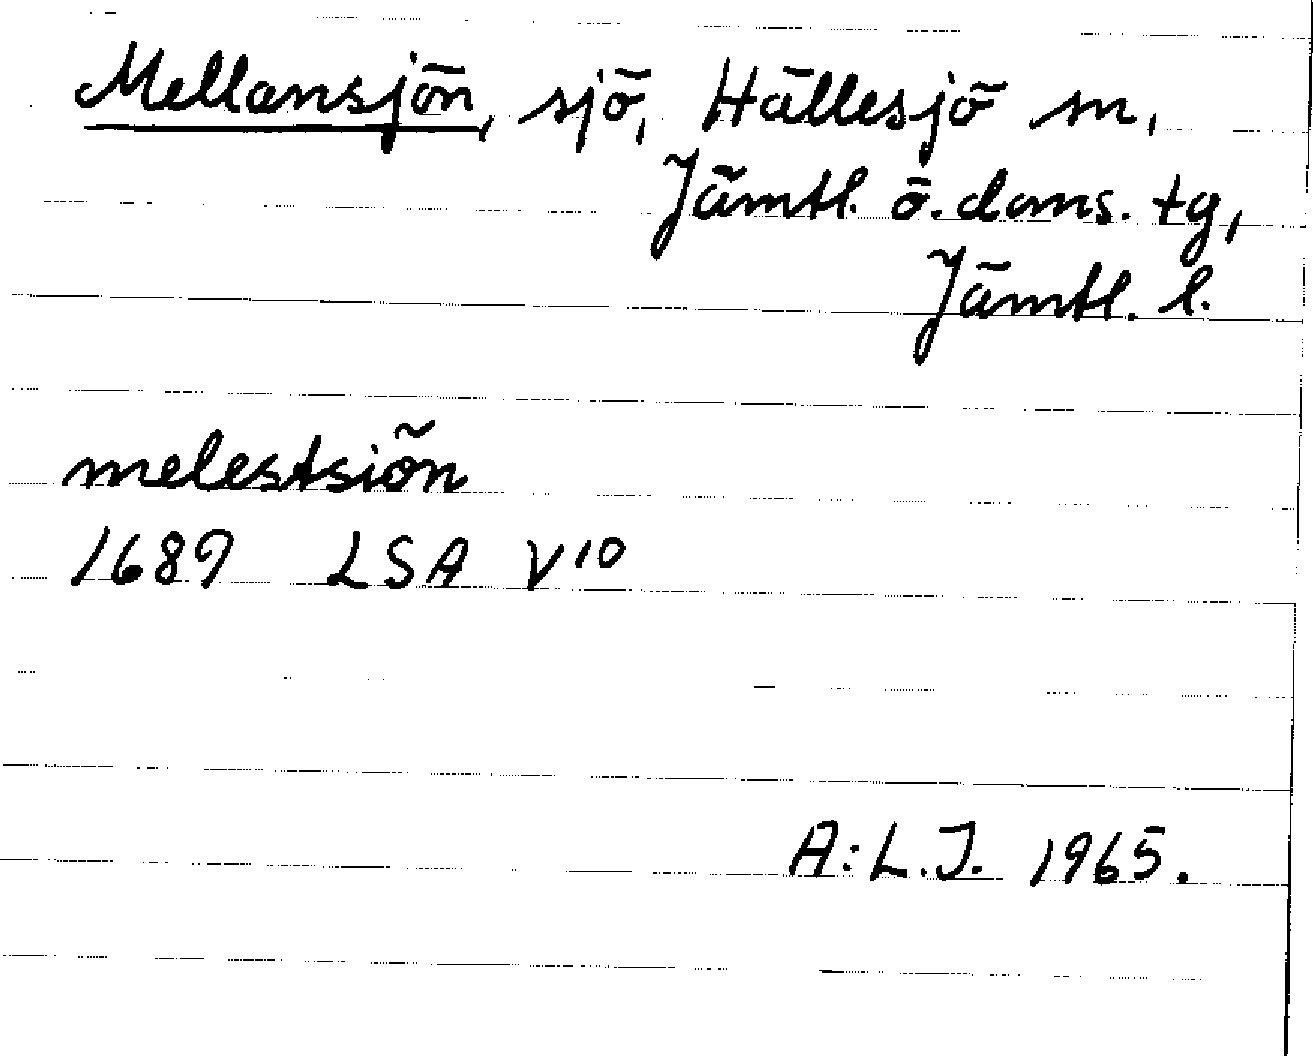 Mellansjön, sjö, Hällesjö sn,
Jämtl. ö. doms. tg,
Jämtl. l.
melestsiön
1689 LSA V10
A:L.J. 1965.